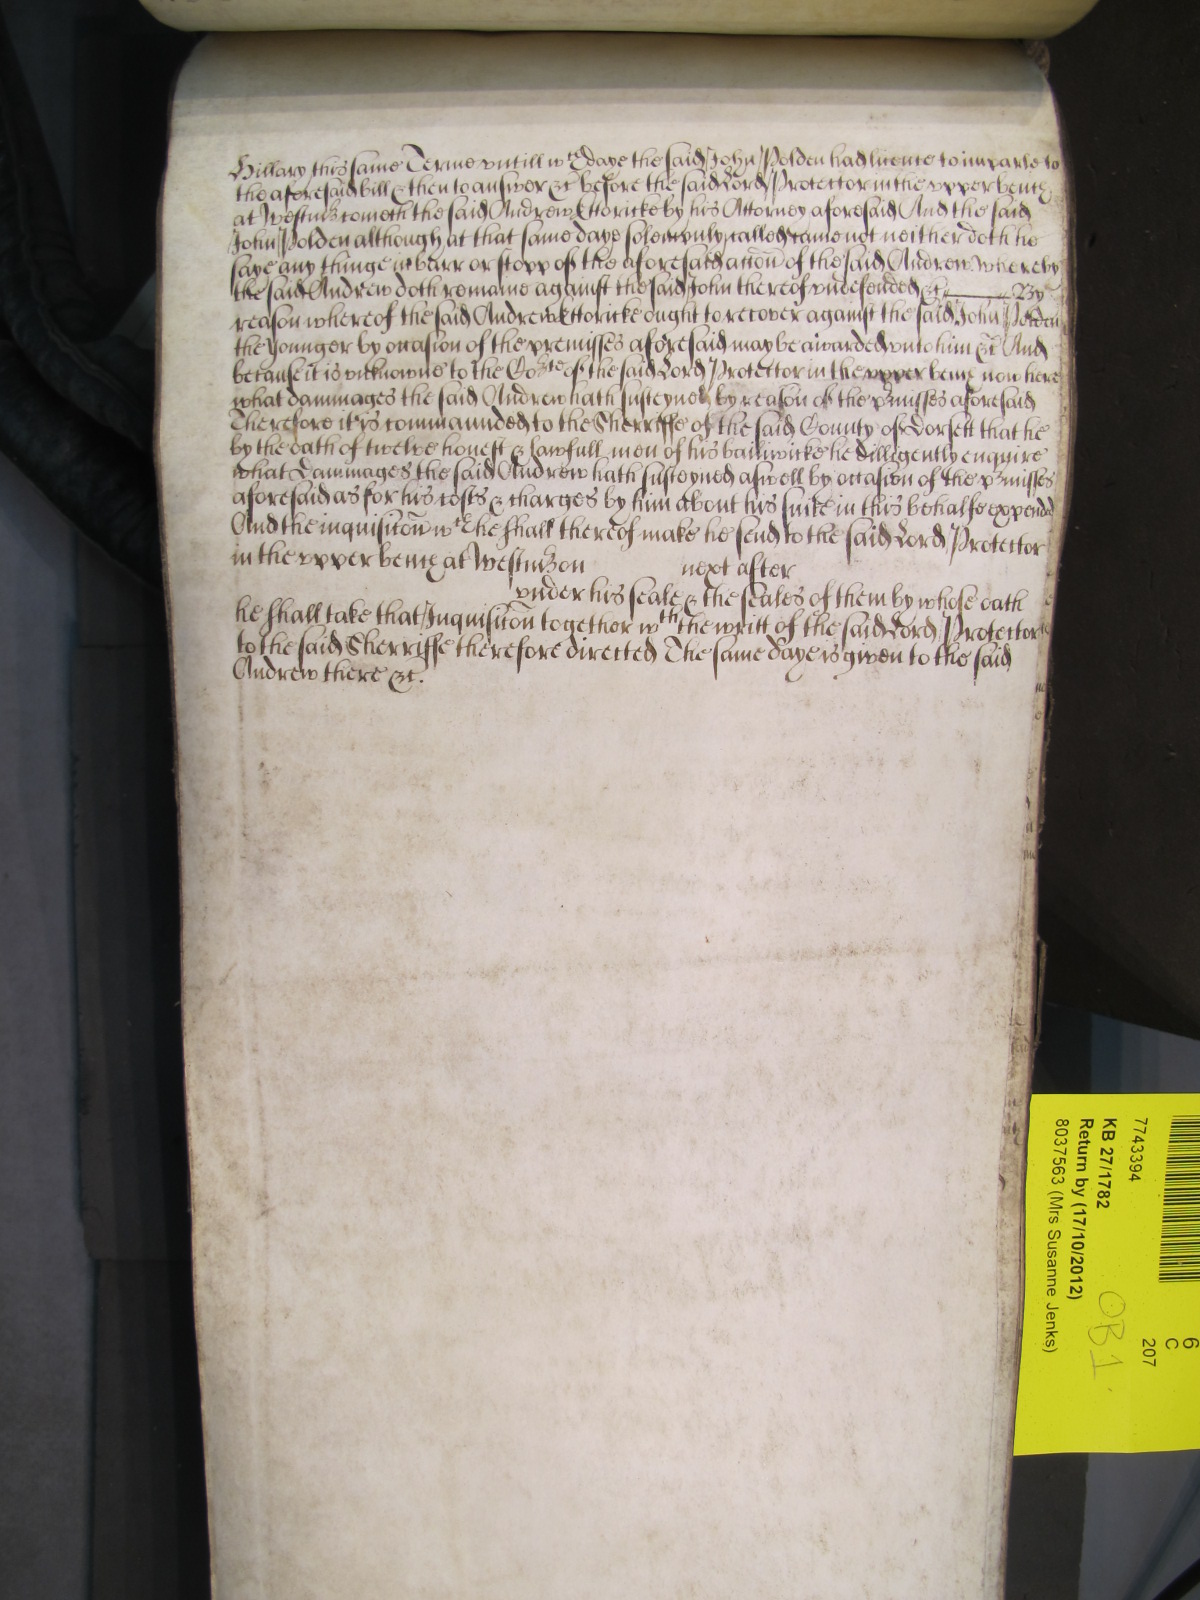 Hillary this same Terme untill wch daye the said John Polden had licence to imparle to
the aforesaid bill & then to answer &c before the said Lord Protector in the upper bench
at Westmr cometh the said Andrew Ettoricke by his Attorney aforesaid And the said
John Polden although at that same daye solemnly called came not neither doth he
saye any thinge in barr or stopp of the aforesaid accon of the said Andrew whereby
the said Andrew doth remaine against the said John thereof undefended &c By
reason whereof the said Andrew Ettoricke ought to recover against the said John Polden
the younger by occasion of the premisses aforesaid may be awarded unto him &c And
because it is unknowne to the Corte of the said Lord Protector in the upper bench now here
what dammages the said Andrew hath susteyned by reason of the pmisses aforesaid
Therefore it is commaunded to the Sherriffe of the said County of Dorsett that he
by the oath of twelve honest & lawfull men of his bailiwicke he dilligently enquire
what dammages the said Andrew hath susteyned aswell by occasion of the pmisses
aforesaid as for his costs & charges by him about his suite in this behalfe expended
And the inquisicon wch he shall thereof make he send to the said Lord Protector
in the upper bench at Westmr on next after
under his seale & the seales of them by whose oath
he shall take that Inquisicon together wth the writt of the said Lord Protector
to the said Sherriffe therefore directed The same daye is given to the said
Andrew there &c.
7743394
KB 27/1782
Return by (17/10/2012)
8037563 (Mrs Susanne Jenks)
6
C
207
OB1